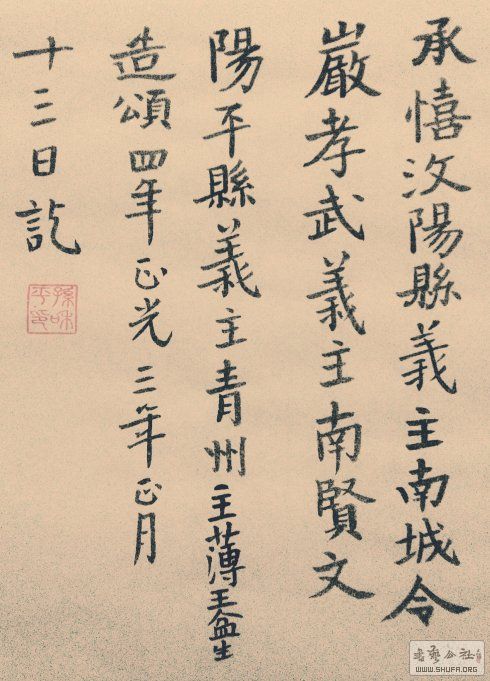 承憘汶陽縣義主南城令
嚴孝武義主南賢文
陽平縣義主青州主薄王盎生
造頌四年正光三年正月
十三日訖
WWW.SHUFA.ORG